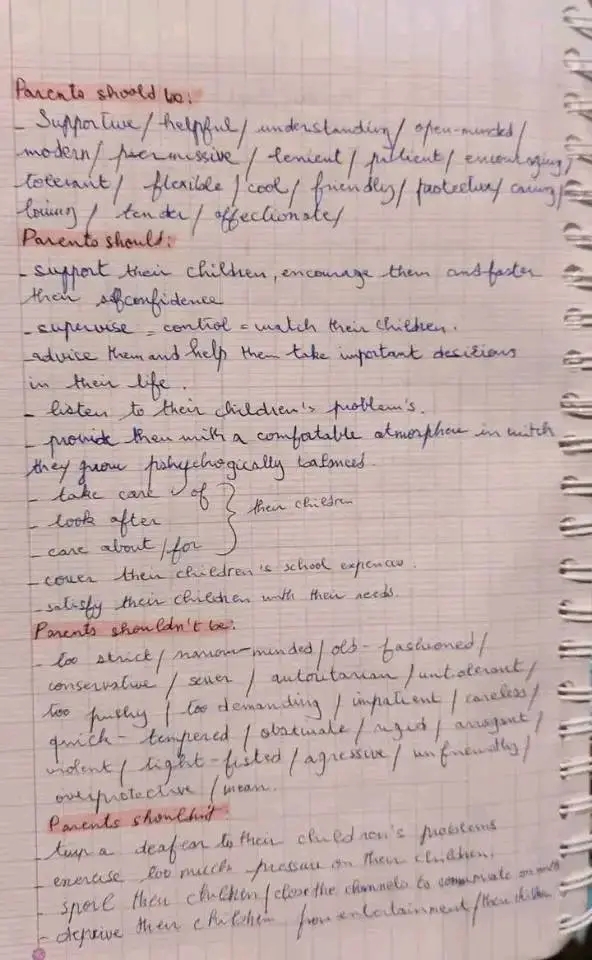 Parents should be:
- Supportive / helpful / understanding / open-minded /
modern / permissive / lenient / patient / encouraging /
tolerant / flexible / cool / friendly / protective / caring /
loving / tender / affectionate /
Parents should:
- support their children, encourage them and foster
their selfconfidence
- supervise = control = watch their children.
- advice them and help them take important desicions
in their life.
- listen to their children's problem's.
- provide then with a comfatable atmorphere in witch
they grow pshychogically balanced.
- take care of
- look after } their children
- care about / for
- cover their children's school expences.
- satisfy their children with their needs.
Parents shouldn't be:
- too strict / narrow-minded / old-fashioned /
conservative / sever / autoritarian / untolerant /
too pushy / too demanding / impatient / careless /
quick-tempered / obstinate / rigid / arrogant /
violent / tight-fisted / agressive / unfriendly /
overprotective / mean.
Parents shouldn't
- turn a deaf ear to their children's problems
- exercise too much pressure on their children.
- spoil their children / close the channels to communicate
- deprive their children from entertainment / their children